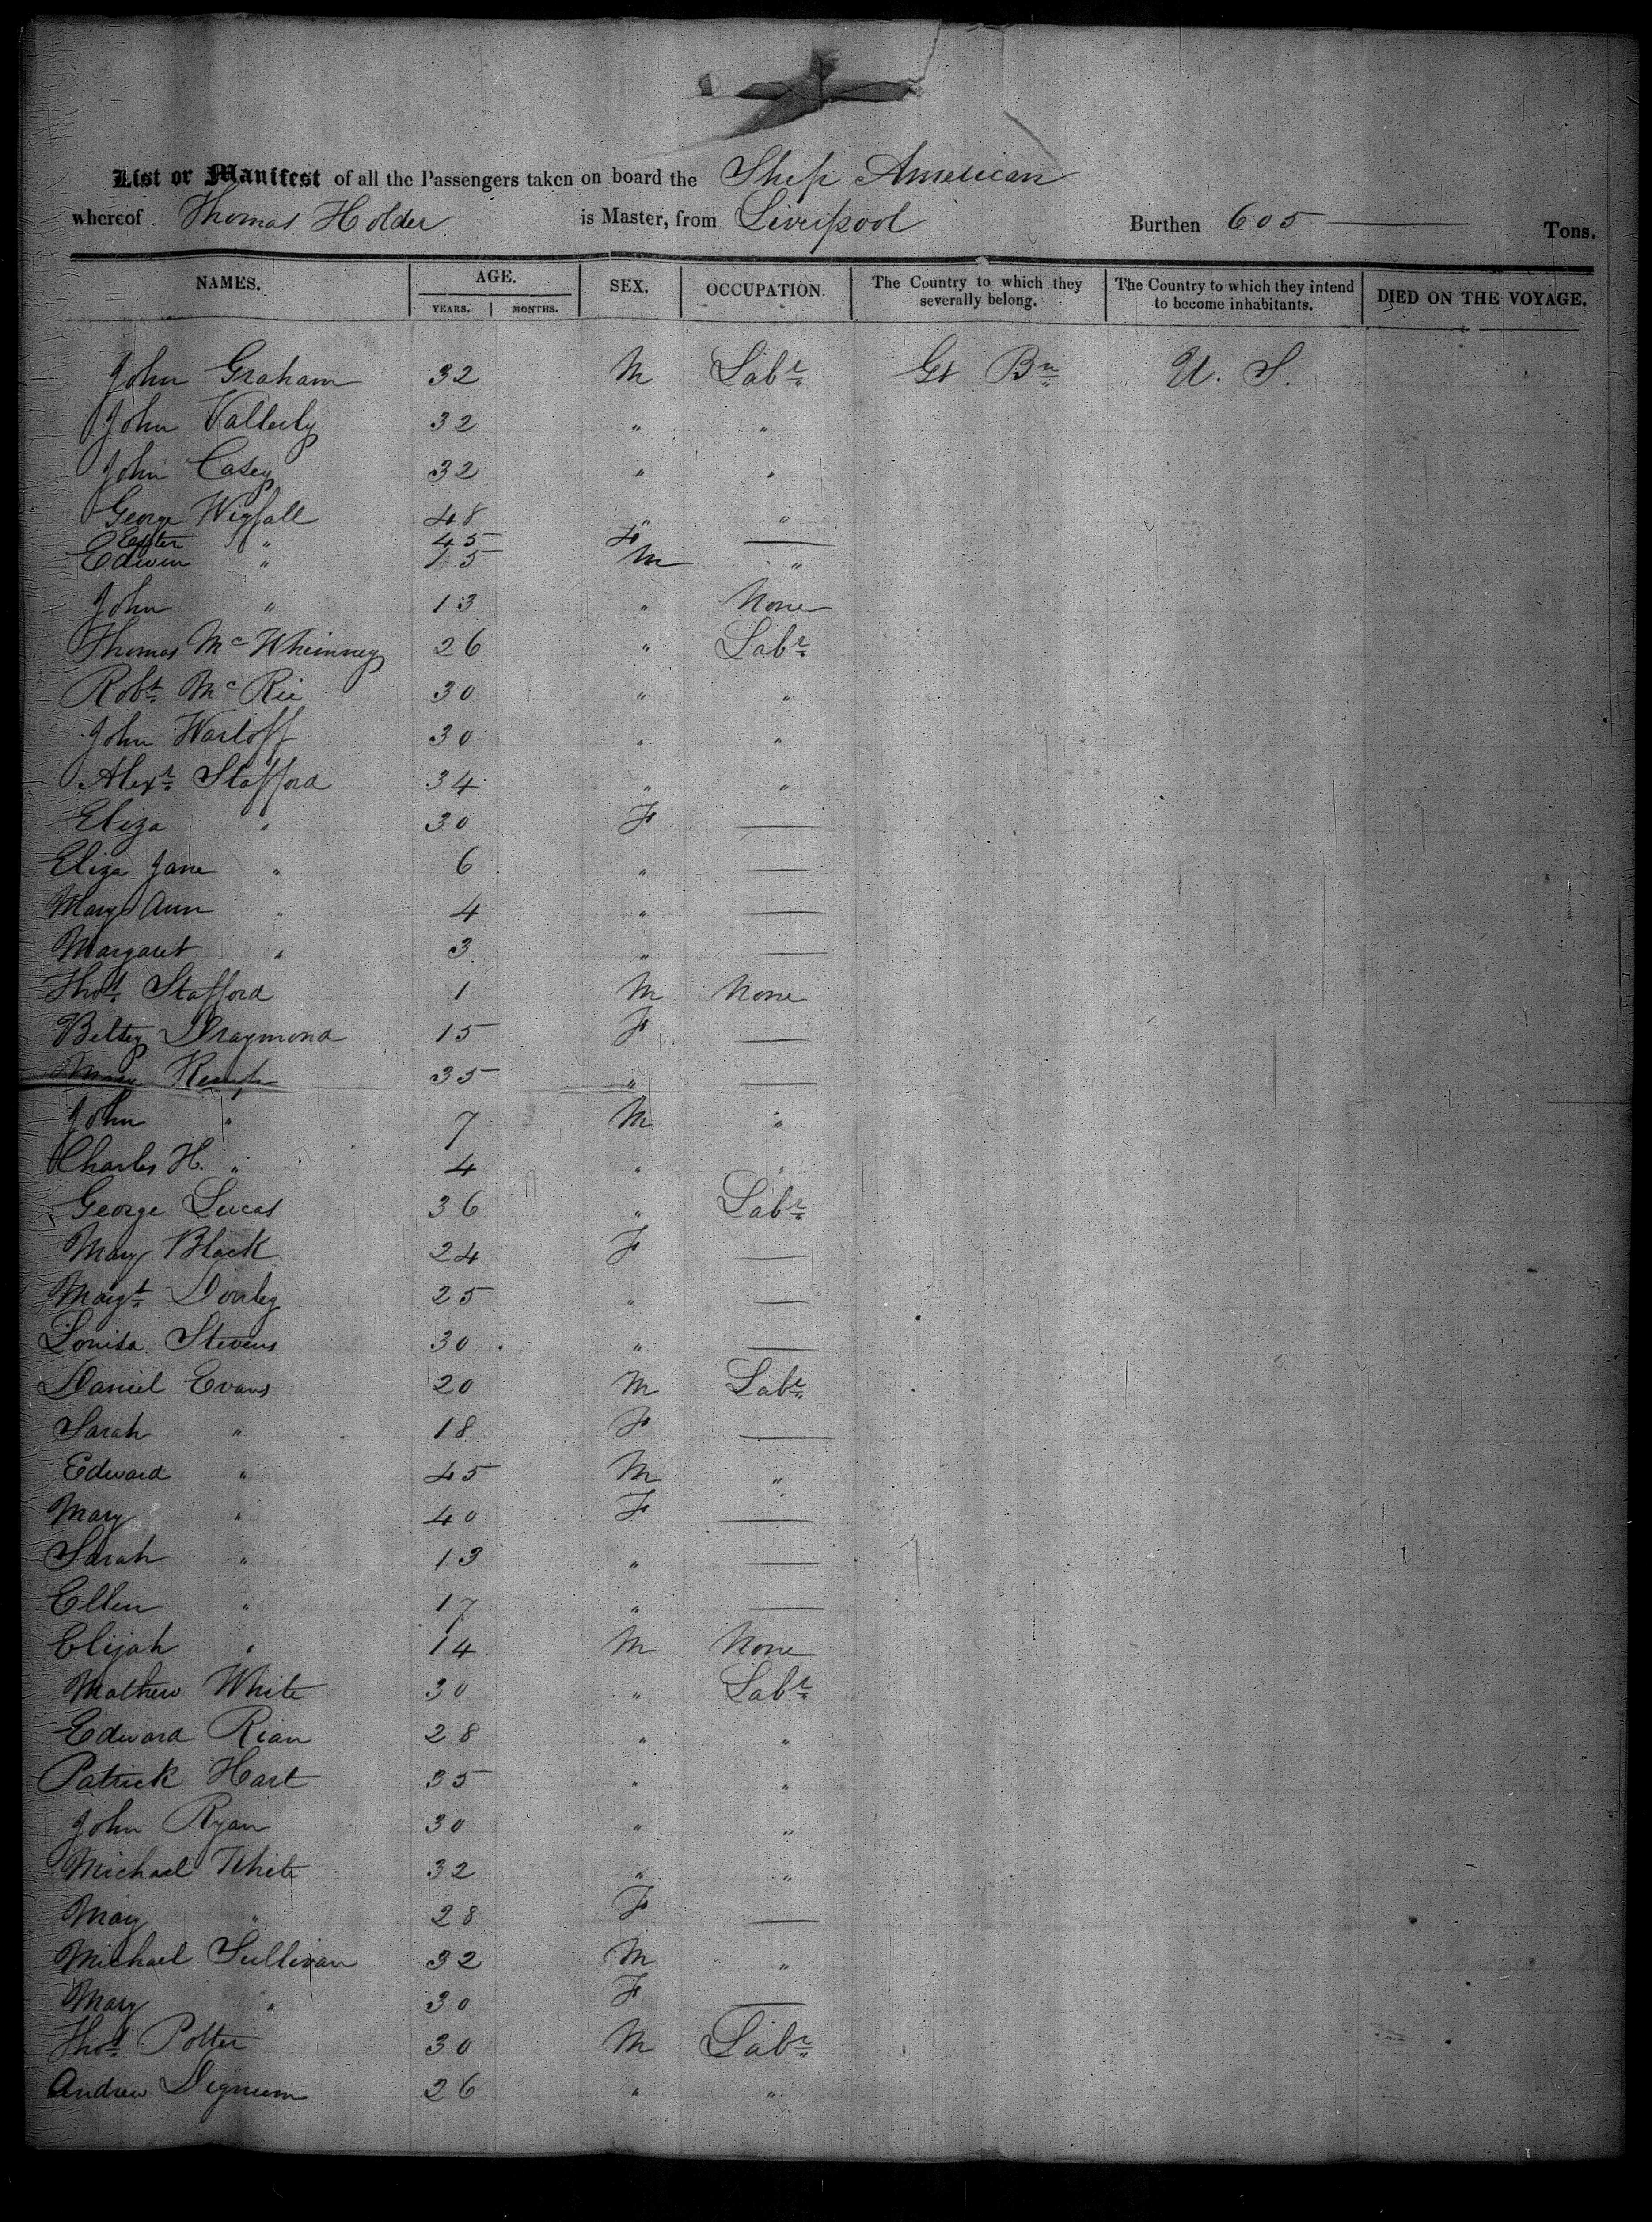 List or Manifest of all the Passengers taken on board the Ship American
whereof Thomas Holder is Master, from Liverpool Burthen 605 Tons.
NAMES. AGE. SEX. OCCUPATION. The Country to which they severally belong. The Country to which they intend to become inhabitants. DIED ON THE VOYAGE.
YEARS. MONTHS.
John Graham 32 M Labr Gt Bn U. S.
John Vallerly 32 " "
John Casey 32 " "
George Wigfall 48 " "
Ester " 45 F —
Edwin " 15 M "
John " 13 " None
Thomas Mc Whinney 26 " Labr
Robt Mc Rie 30 " "
John Warloff 30 " "
Alexr Stafford 34 " "
Eliza " 30 F —
Eliza Jane " 6 " —
Mary Ann " 4 " —
Margaret " 3 " —
Thos Stafford 1 M None
Betsey Draymond 15 F —
35 " —
John " 7 M "
Charles H. " 4 " "
George Lucas 36 " Labr
Mary Black 24 F —
Margt Donley 25 " —
Louisa Stevens 30 " —
Daniel Evans 20 M Labr
Sarah " 18 F —
Edward " 45 M "
Mary " 40 F —
Sarah " 13 " —
Ellen " 17 " —
Elijah " 14 M None
Mathew White 30 " Labr
Edward Rian 28 " "
Patrick Hart 35 " "
John Ryan 30 " "
Michael White 32 " "
Mary " 28 F —
Michael Sullivan 32 M "
Mary " 30 F —
Thos Potter 30 M Labr
Andrew Dignum 26 " "